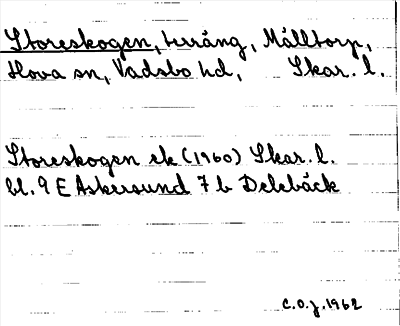 Storeskogen, terräng, Målltorp,
Hova sn, Vadsbo hd, Skar. l.
Storeskogen ek (1960) Skar. l.
bl. 9 E Askersund 7 b Delebäck
C.O.J. 1962